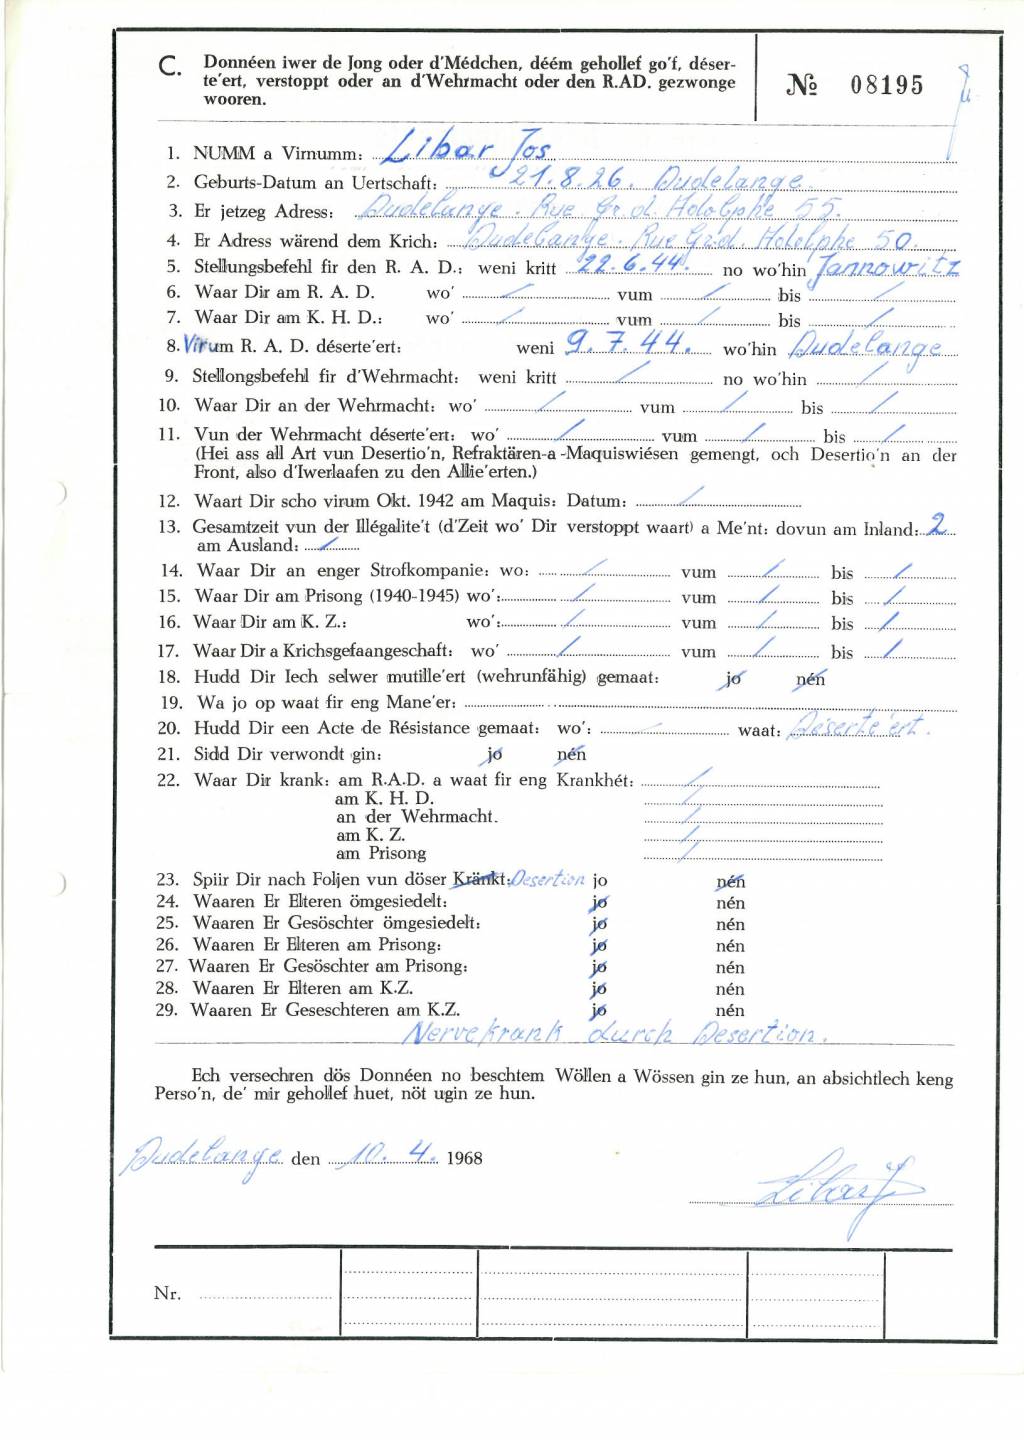 C. Donnéen iwer de Jong oder d'Médchen, déém gehollef go'f, déser-
te'ert, verstoppt oder an d'Wehrmacht oder den R.AD. gezwonge
wooren.
№ 08195
1. NUMM a Virnumm: Libar Jos
2. Geburts-Datum an Uertschaft: 21.8.26. Dudelange.
3. Er jetzeg Adress: Dudelange. Rue Gr. d. Adolphe 55.
4. Er Adress wärend dem Krich: Dudelange. Rue Grd. Adolphe 50.
5. Stellungsbefehl fir den R. A. D.: weni kritt 22.6.44. no wo'hin Jannowitz
6. Waar Dir am R. A. D. wo' / vum / bis /
7. Waar Dir am K. H. D.: wo' / vum / bis /
8. Virum R. A. D. déserte'ert: weni 9.7.44. wo'hin Dudelange
9. Stellongsbefehl fir d'Wehrmacht: weni kritt / no wo'hin /
10. Waar Dir an der Wehrmacht: wo' / vum / bis /
11. Vun der Wehrmacht déserte'ert: wo' / vum / bis /
(Hei ass all Art vun Desertio'n, Refraktären-a-Maquiswiésen gemengt, och Desertio'n an der
Front, also d'Iwerlaafen zu den Allie'erten.)
12. Waart Dir scho virum Okt. 1942 am Maquis: Datum: /
13. Gesamtzeit vun der Illégalite't (d'Zeit wo' Dir verstoppt waart) a Me'nt: dovun am Inland: 2
am Ausland: /
14. Waar Dir an enger Strofkompanie: wo: / vum / bis /
15. Waar Dir am Prisong (1940-1945) wo': / vum / bis /
16. Waar Dir am K. Z.: wo': / vum / bis /
17. Waar Dir a Krichsgefaangeschaft: wo' / vum / bis /
18. Hudd Dir Iech selwer mutille'ert (wehrunfähig) gemaat: jo nén
19. Wa jo op waat fir eng Mane'er:
20. Hudd Dir een Acte de Résistance gemaat: wo': / waat: Déserte'ert.
21. Sidd Dir verwondt gin: jo nén
22. Waar Dir krank: am R.A.D. a waat fir eng Krankhét: /
am K. H. D. /
an der Wehrmacht. /
am K. Z. /
am Prisong /
23. Spiir Dir nach Foljen vun döser Kränkt: Desertion jo nén
24. Waaren Er Elteren ömgesiedelt: jo nén
25. Waaren Er Gesöschter ömgesiedelt: jo nén
26. Waaren Er Elteren am Prisong: jo nén
27. Waaren Er Gesöschter am Prisong: jo nén
28. Waaren Er Elteren am K.Z. jo nén
29. Waaren Er Geseschteren am K.Z. jo nén
Nervekrank durch Desertion.
Ech versechren dös Donnéen no beschtem Wöllen a Wössen gin ze hun, an absichtlech keng
Perso'n, de' mir gehollef huet, nöt ugin ze hun.
Dudelange den 10. 4. 1968
Libar J
Nr.